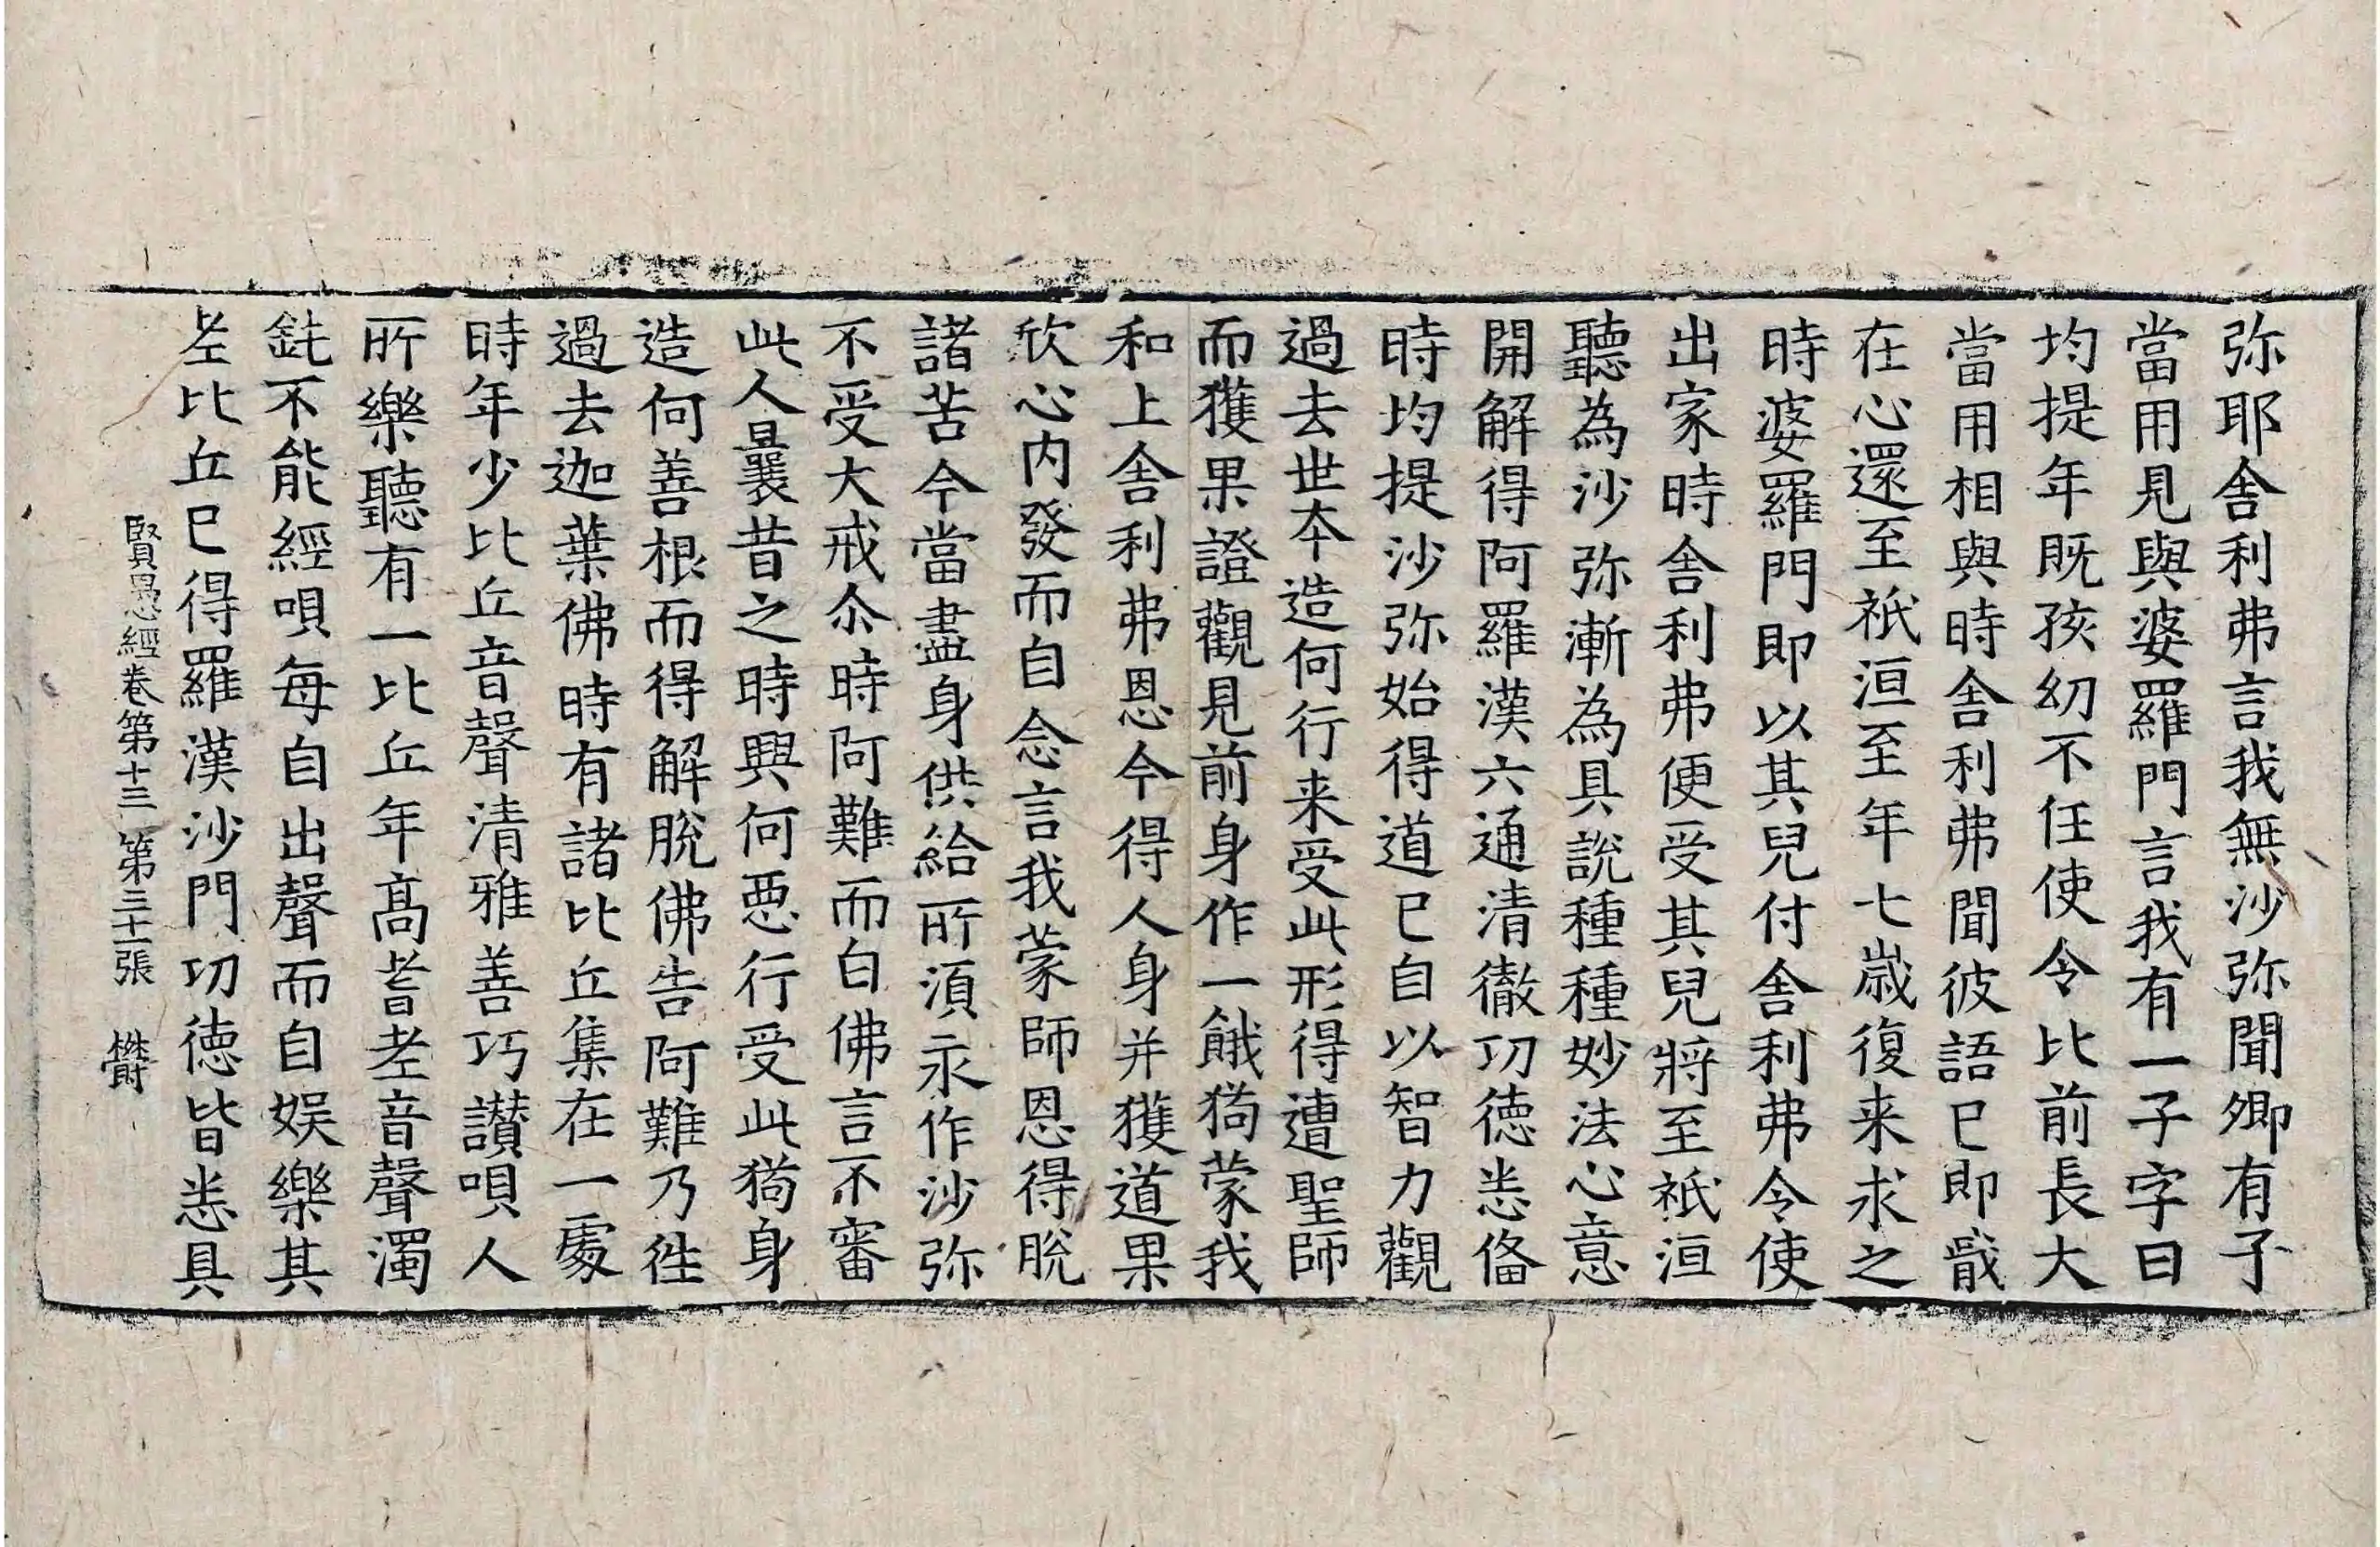 弥耶舍利弗言我無沙弥聞卿有子
當用見與婆羅門言我有一子字曰
均提年既孩幼不任使令比前長大
當用相與時舍利弗聞彼語已即戢
在心還至祇洹至年七歲復来求之
時婆羅門即以其兒付舍利弗令使
出家時舍利弗便受其兒將至祇洹
聽為沙弥漸為具說種種妙法心意
開解得阿羅漢六通清徹功德悉俻
時均提沙弥始得道已自以智力觀
過去世本造何行来受此形得遭聖師
而獲果證觀見前身作一餓狗蒙我
和上舍利弗恩今得人身并獲道果
欣心内發而自念言我蒙師恩得脫
諸苦今當盡身供給所湏永作沙弥
不受大戒尒時阿難而白佛言不審
此人曩昔之時興何惡行受此狗身
造何善根而得解脫佛告阿難乃往
過去迦葉佛時有諸比丘集在一處
時年少比丘音聲清雅善巧讃唄人
所樂聽有一比丘年髙耆老音聲濁
鈍不能經唄每自出聲而自娱樂其
老比丘已得羅漢沙門功德皆悉具
賢愚經卷第十三 第三十一張 欝